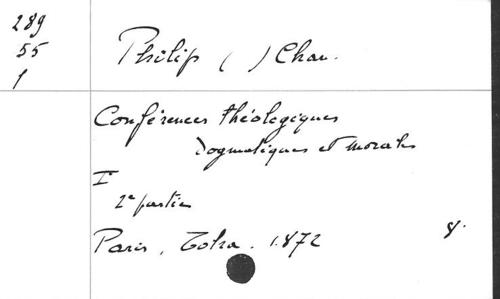 289
55
1
Philip ( ) Chan.
Conférences théologiques
dogmatiques et morales
I
2e partie
Paris, Tolra. 1872 8.